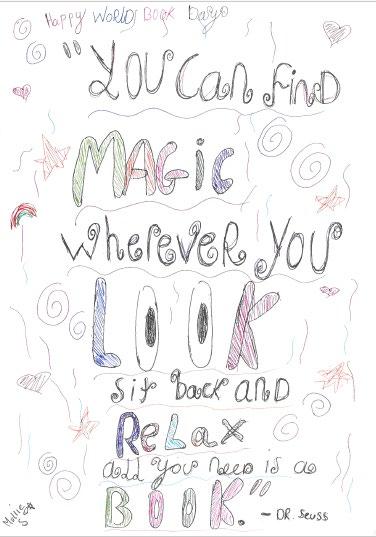 Happy WORLD BOOK Day
"YOU Can FinD
MAGIC
wherever You
LOOK
sit back AND
ReLax
all you need is a
BOOK."
- DR. Seuss